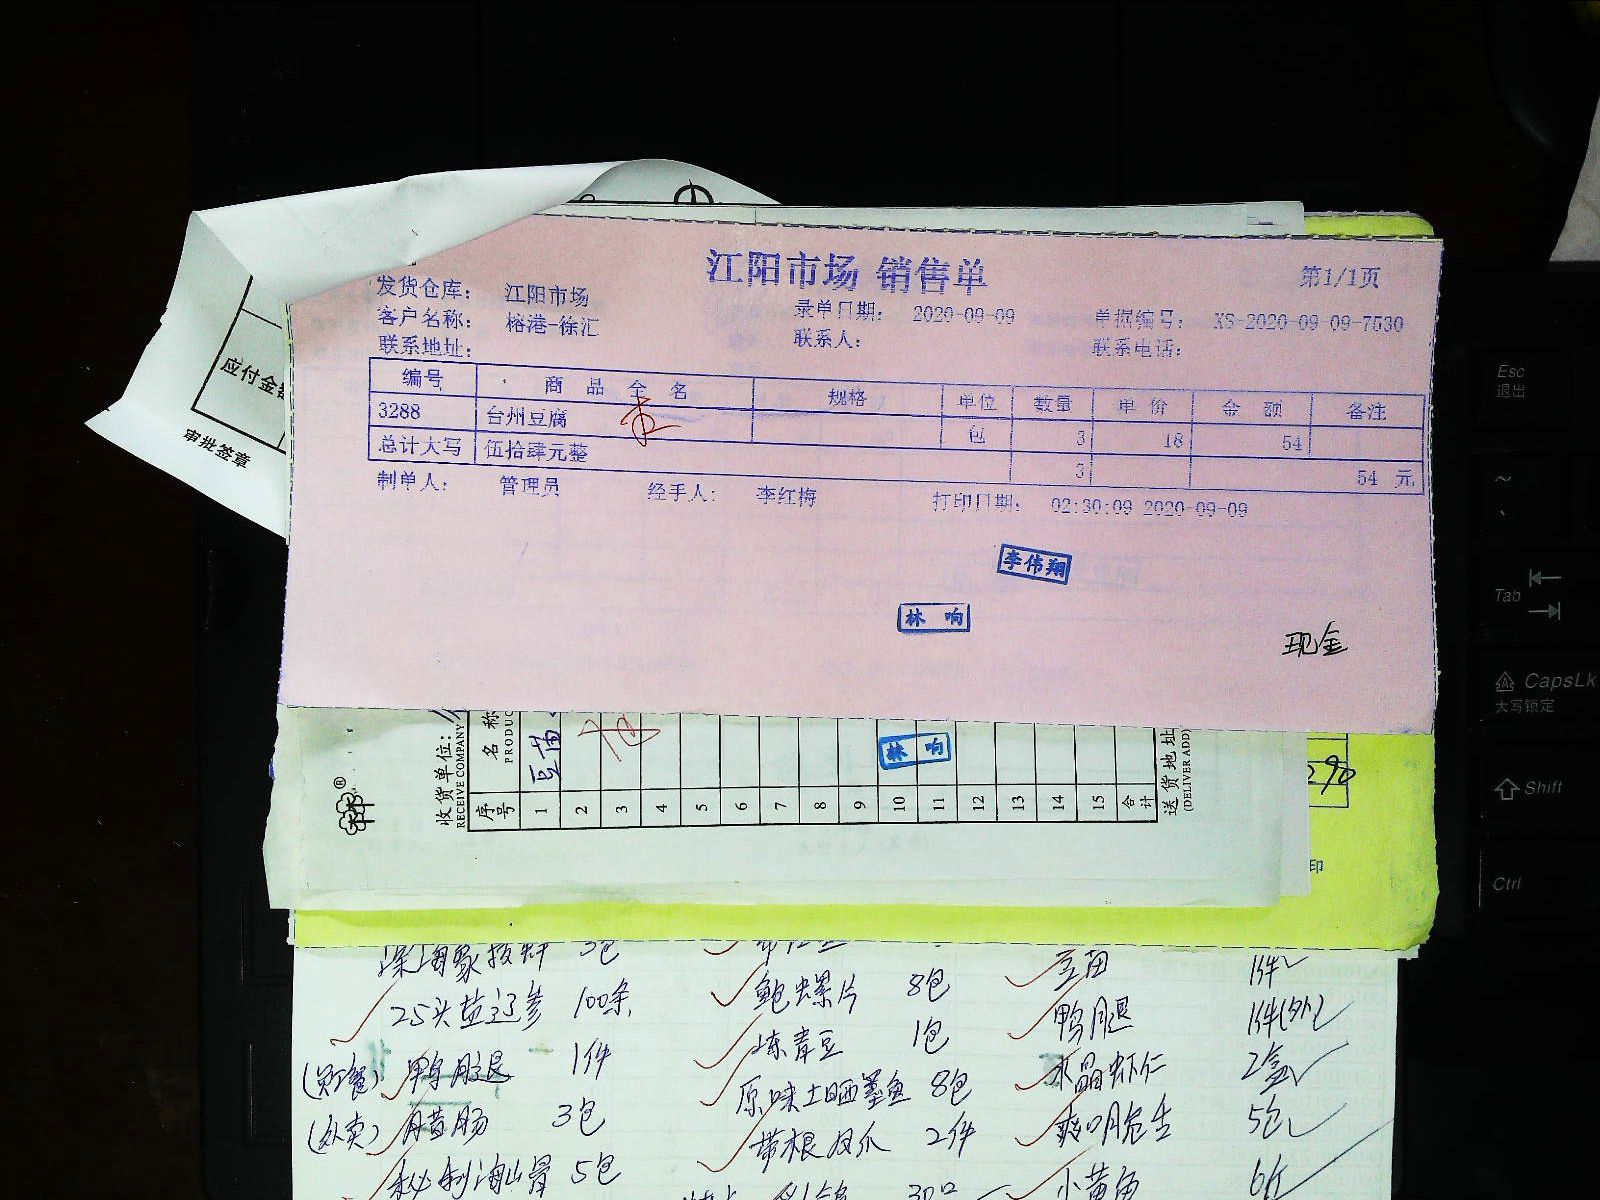 江阳市场 销售单
第1/1页
发货仓库： 江阳市场
录单日期： 2020-09-09
单据编号： XS-2020-09-09-7530
客户名称： 榕港-徐汇
联系人：
联系电话：
联系地址：
编号 商品全名 规格 单位 数量 单价 金额 备注
3288 台州豆腐 包 3 18 54
总计大写 伍拾肆元整 3 54 元
制单人： 管理员 经手人： 李红梅 打印日期： 02:30:09 2020-09-09
李伟翔
林 响
现金
应付金
审批签章
收货单位：
RECEIVE COMPANY
序号 名称
PRODUC
1 豆苗
2
3
4
5
6
7
8
9
10
11
12
13
14
15
合计
送货地址
(DELIVER ADD)
林 响
290
印
3包
25头盐辽参 100条
鲍螺片 8包
豆苗 1件
鸭腿 1件(外)
(员餐) 鸭腿 1件
冻青豆 1包
水晶虾仁 2盒
(外卖) 腊肠 3包
原味土晒墨鱼 8包
5包
带根凤爪 2件
5包
小黄鱼 6斤
Esc
退出
Tab
CapsLk
大写锁定
Shift
Ctrl